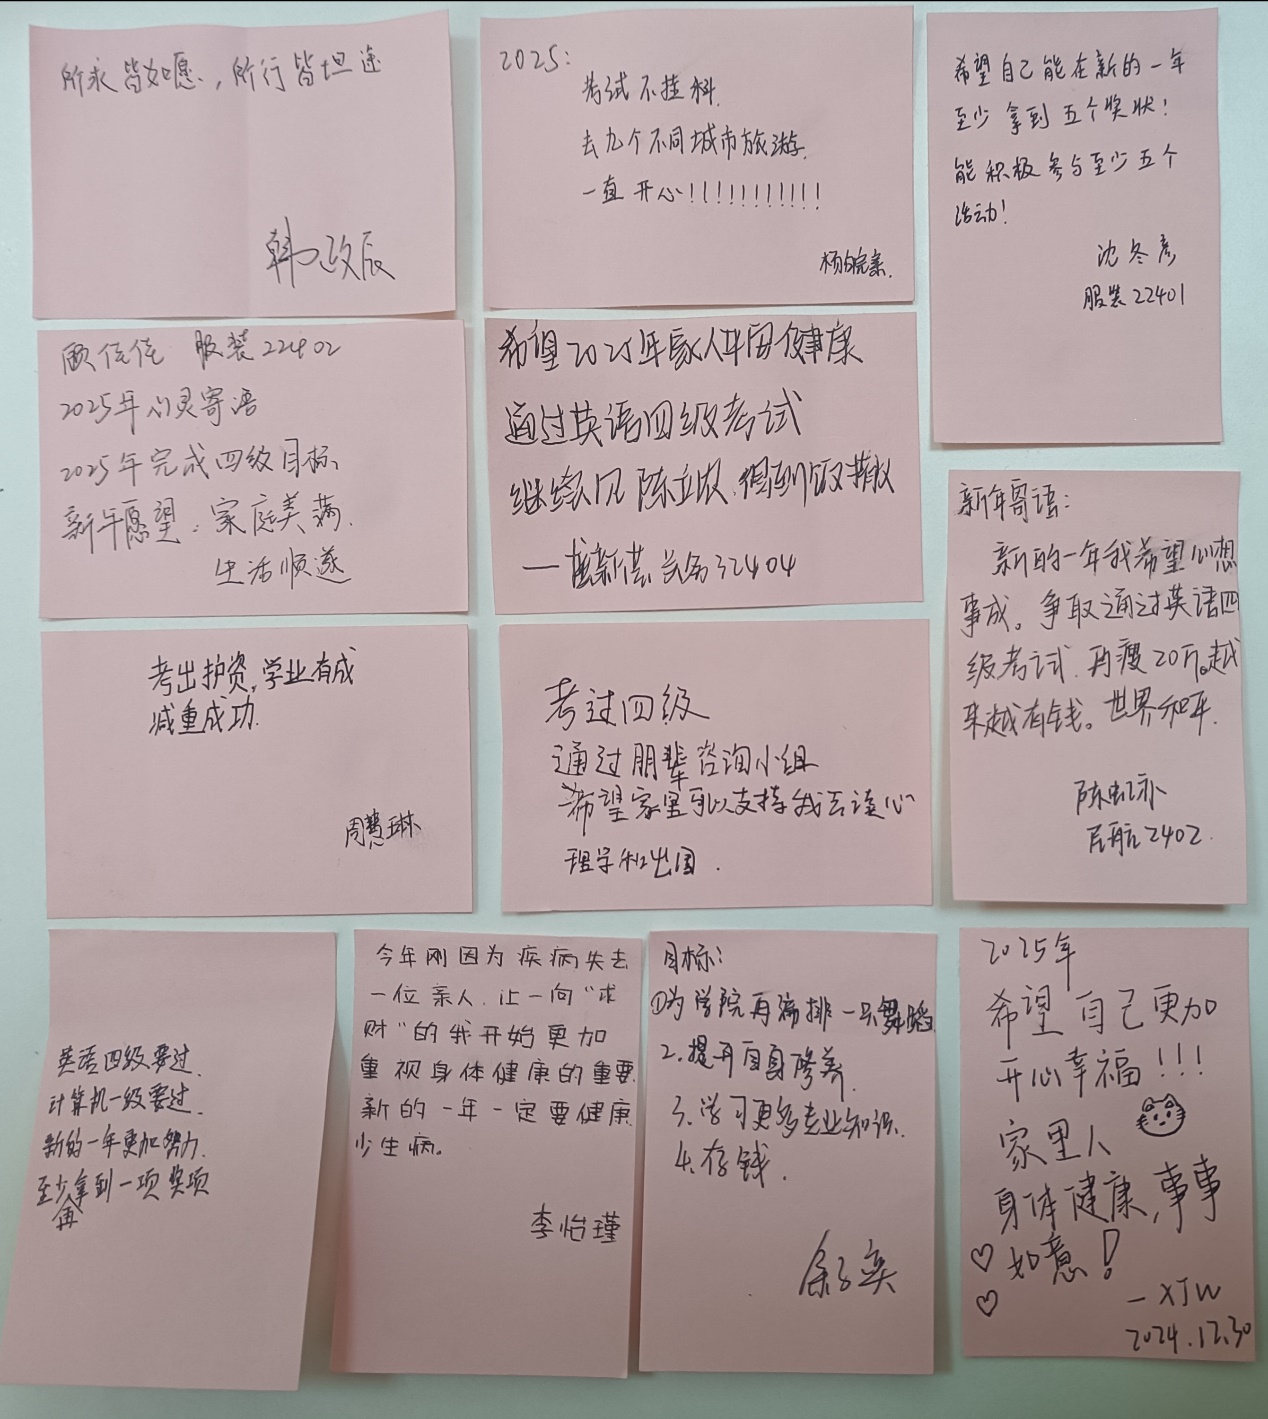 所求皆如愿，所行皆坦途
韩政辰
2025：
考试不挂科
去九个不同城市旅游.
一直开心!!!!!!!!!!!
杨皖
希望自己能在新的一年
至少拿到五个奖状！
能积极参与至少五个
活动！
沈冬彦
服装22401
顾佳佳 服装22402
2025年心灵寄语
2025年完成四级目标
新年愿望：家庭美满.
生活顺遂
希望2025年家人平安健康
通过英语四级考试
继续见陈立农.得到饭撒
32404
新年寄语：
新的一年我希望心想
事成。争取通过英语四
级考试.再瘦20斤。越
来越有钱。世界和平.
陈虹
民航2402.
考出护资,学业有成
减重成功.
周慧琳
考过四级
通过朋辈咨询小组
希望家里可以支持我去读心
理学和出国.
英语四级要过.
计算机一级要过.
新的一年更加努力.
至少再拿到一项奖项
今年刚因为疾病失去
一位亲人.让一向“求
财”的我开始更加
重视身体健康的重要
新的一年一定要健康
少生病。
李怡瑾
目标：
①为学院再编排一只舞蹈
2.提升自身修养.
3.学习更多专业知识.
4.存钱.
奕
2025年
希望自己更加
开心幸福!!!
家里人
身体健康,事事
如意!
—XJW
2024.12.30